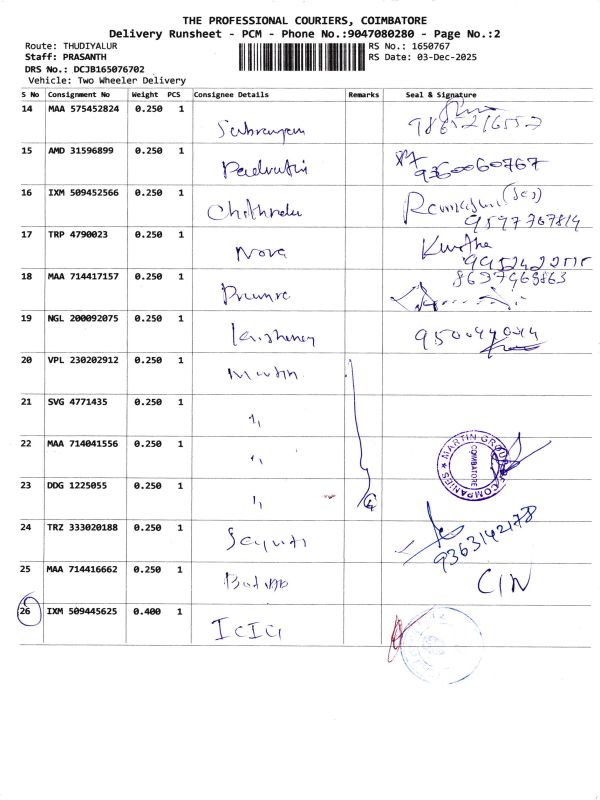 THE PROFESSIONAL COURIERS, COIMBATORE
Delivery Runsheet - PCM - Phone No.:9047080280 - Page No.:2
Route: THUDIYALUR
RS No.: 1650767
Staff: PRASANTH
RS Date: 03-Dec-2025
DRS No.: DCJB165076702
Vehicle: Two Wheeler Delivery
S No Consignment No Weight PCS Consignee Details Remarks Seal & Signature
14 MAA 575452824 0.250 1
15 AMD 31596899 0.250 1 9360060767
16 IXM 509452566 0.250 1 9597767814
17 TRP 4790023 0.250 1 Nova
18 MAA 714417157 0.250 1
19 NGL 200092075 0.250 1
20 VPL 230202912 0.250 1 Martin
21 SVG 4771435 0.250 1 "
22 MAA 714041556 0.250 1 " MARTIN GROUP OF COMPANIES COIMBATORE
23 DDG 1225055 0.250 1 "
24 TRZ 333020188 0.250 1 9363142178
25 MAA 714416662 0.250 1 CIN
26 IXM 509445625 0.400 1 ICICI